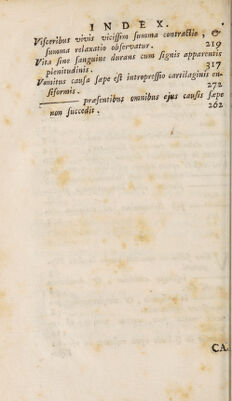 INDEX.
Visceribus vivis vicissim summa contractio, &
summa relaxatio observatur. 219
Vita sine sanguine durans cum signis apparentis
plenitudinis. 317
Vomitus causa sæpe est intropressio cartilaginis en-
siformis. 272
——— præsentibus omnibus ejus causis sæpe
non succedit. 262
CA-